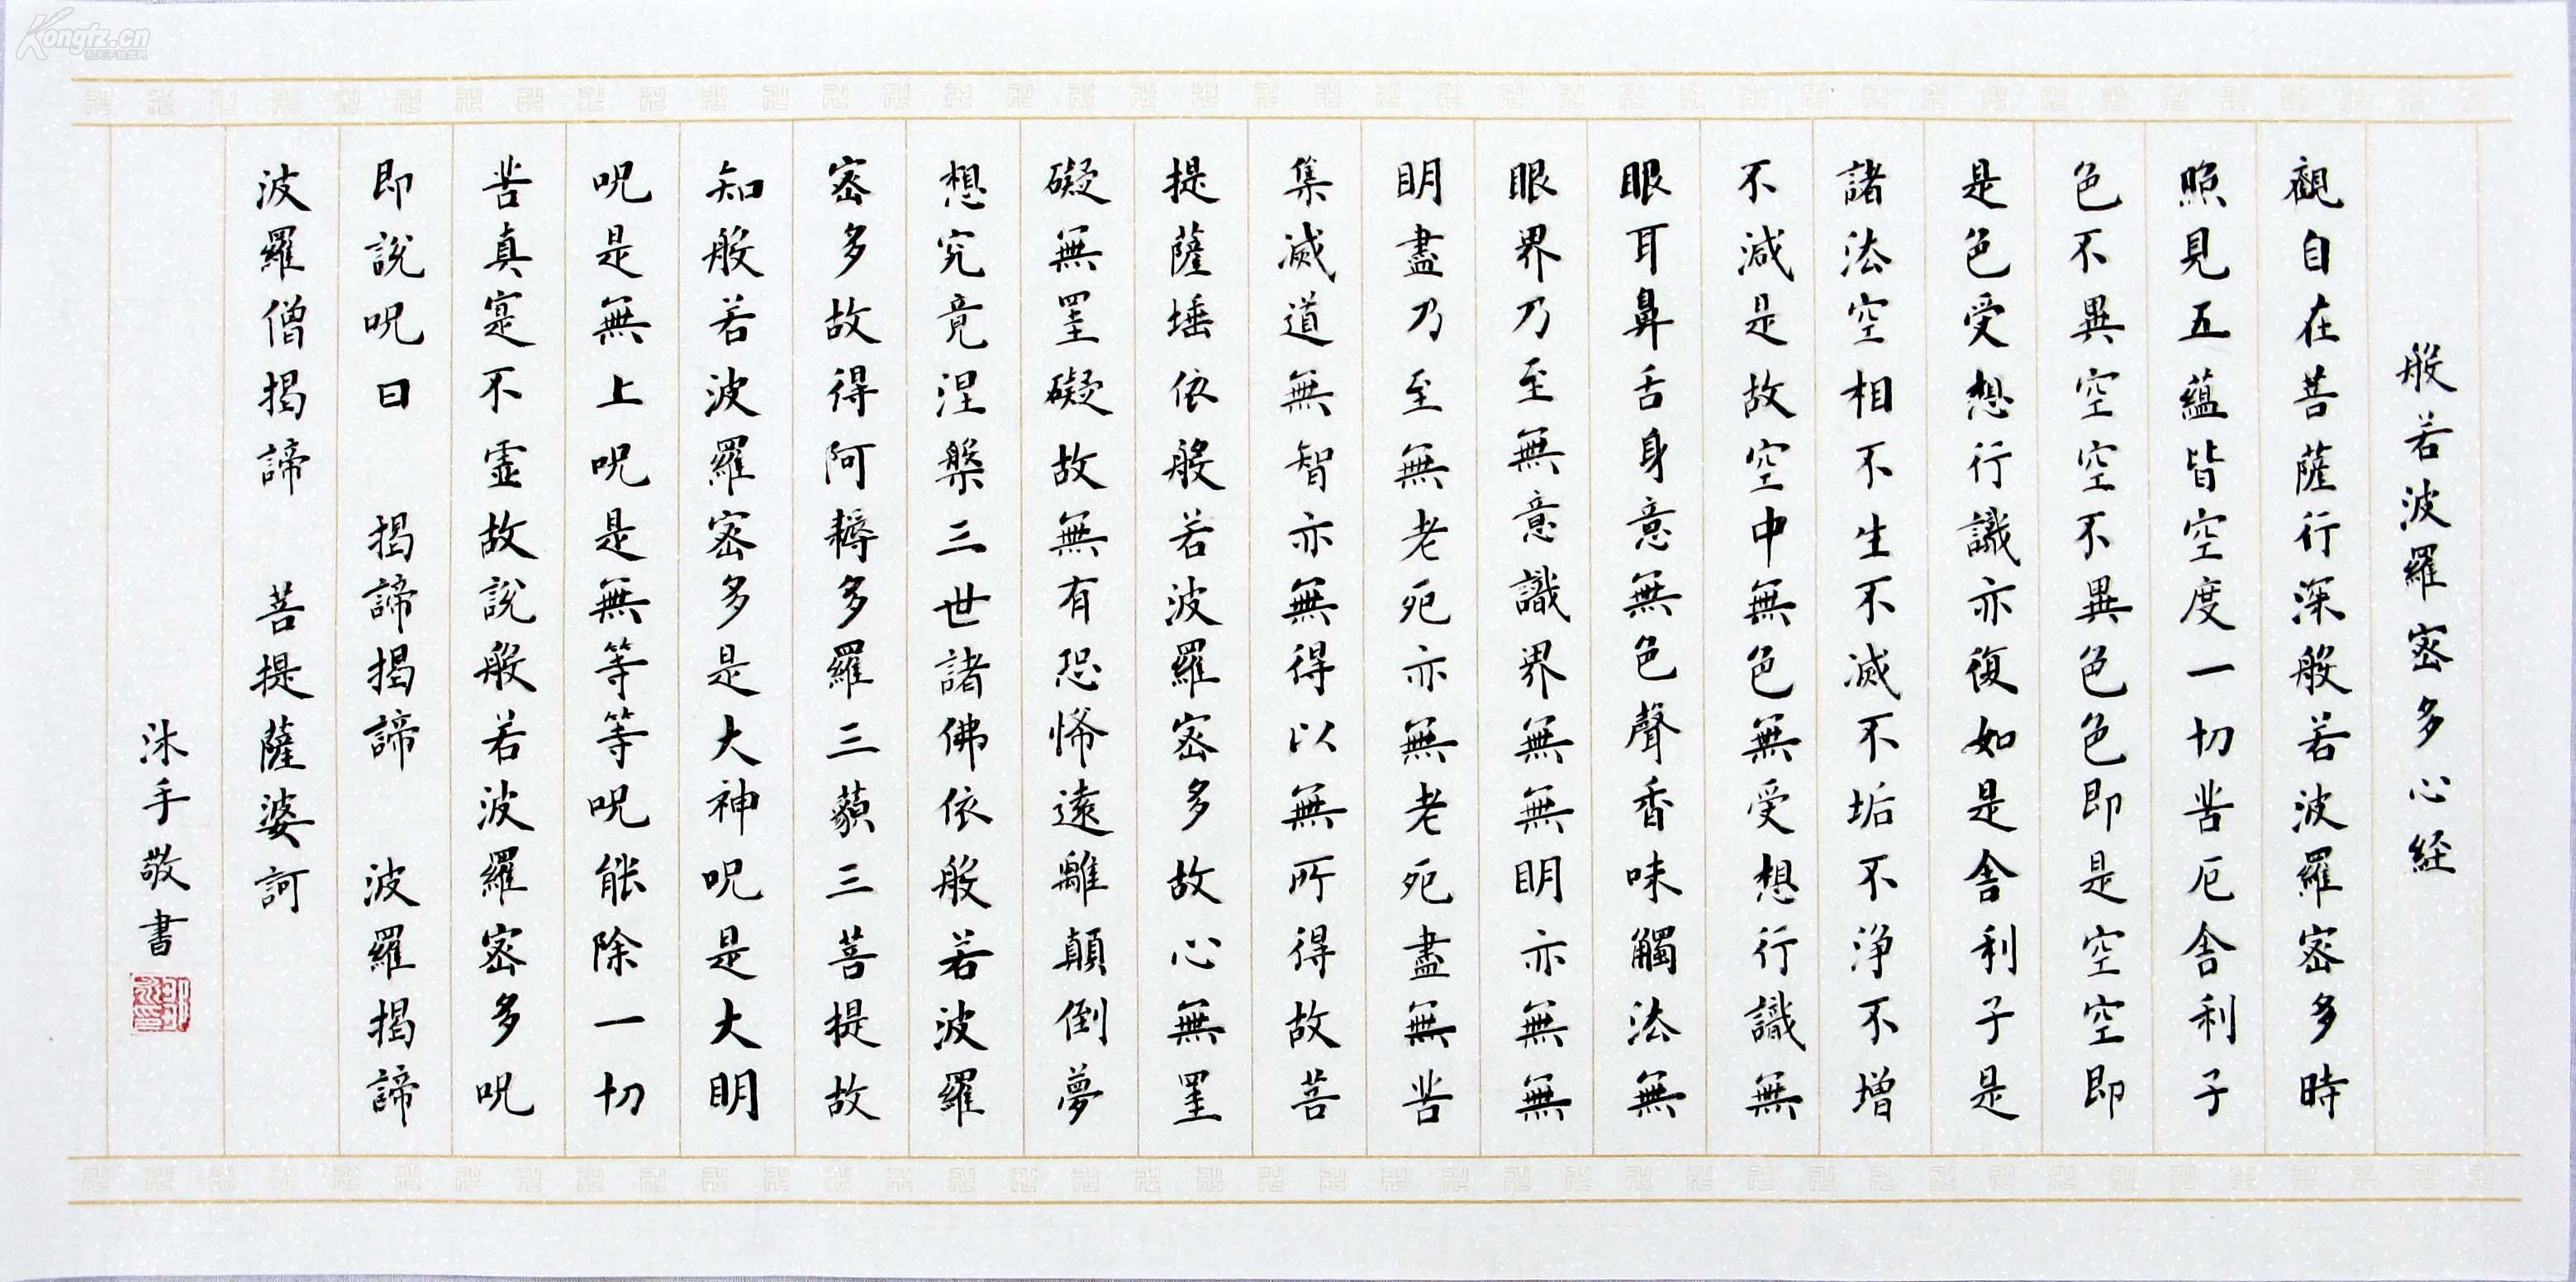 般若波羅密多心经
觀自在菩薩行深般若波羅密多時
照見五蘊皆空度一切苦厄舎利子
色不異空空不異色色即是空空即
是色受想行識亦復如是舎利子是
諸法空相不生不滅不垢不淨不增
不減是故空中無色無受想行識無
眼耳鼻舌身意無色聲香味觸法無
眼界乃至無意識界無無明亦無無
明盡乃至無老死亦無老死盡無苦
集滅道無智亦無得以無所得故菩
提薩埵依般若波羅密多故心無罣
礙無罣礙故無有恐怖遠離顛倒夢
想究竟涅槃三世諸佛依般若波羅
密多故得阿耨多羅三藐三菩提故
知般若波羅密多是大神呪是大明
呪是無上呪是無等等呪能除一切
苦真寔不虛故說般若波羅密多呪
即說呪曰 揭諦揭諦 波羅揭諦
波羅僧揭諦 菩提薩婆訶
沐手敬書
Kongfz.cn